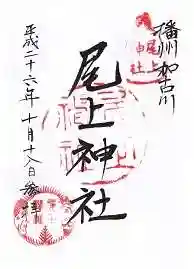 播州加古川
尾上神社
尾上神社
平成二十六年十月十八日参拝